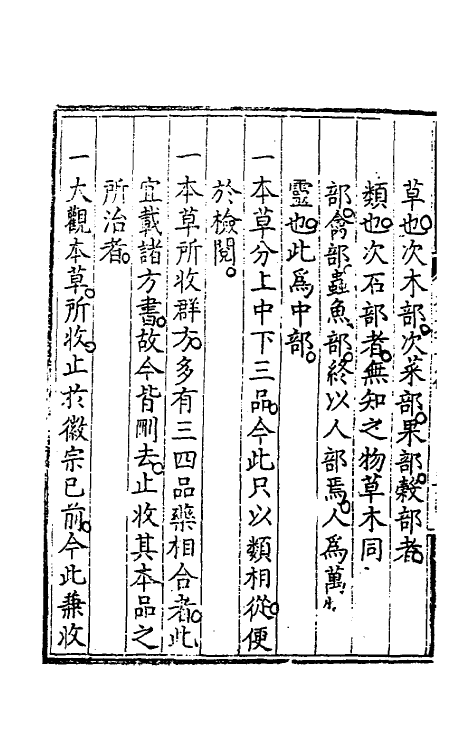 草也。次木部。次菜部。果部。穀部者。
類也。次石部者。無知之物草木同
部。禽部蟲魚部。終以人部焉。人爲萬
靈也。此爲中部。
一本草分上中下三品。今此只以類相從。便
於檢閱。
一本草所收群方。多有三四品藥相合者。此
宜載諸方書。故今皆刪去。止收其本品之
所治者。
一大觀本草。所收。止於徽宗已前。今此兼收